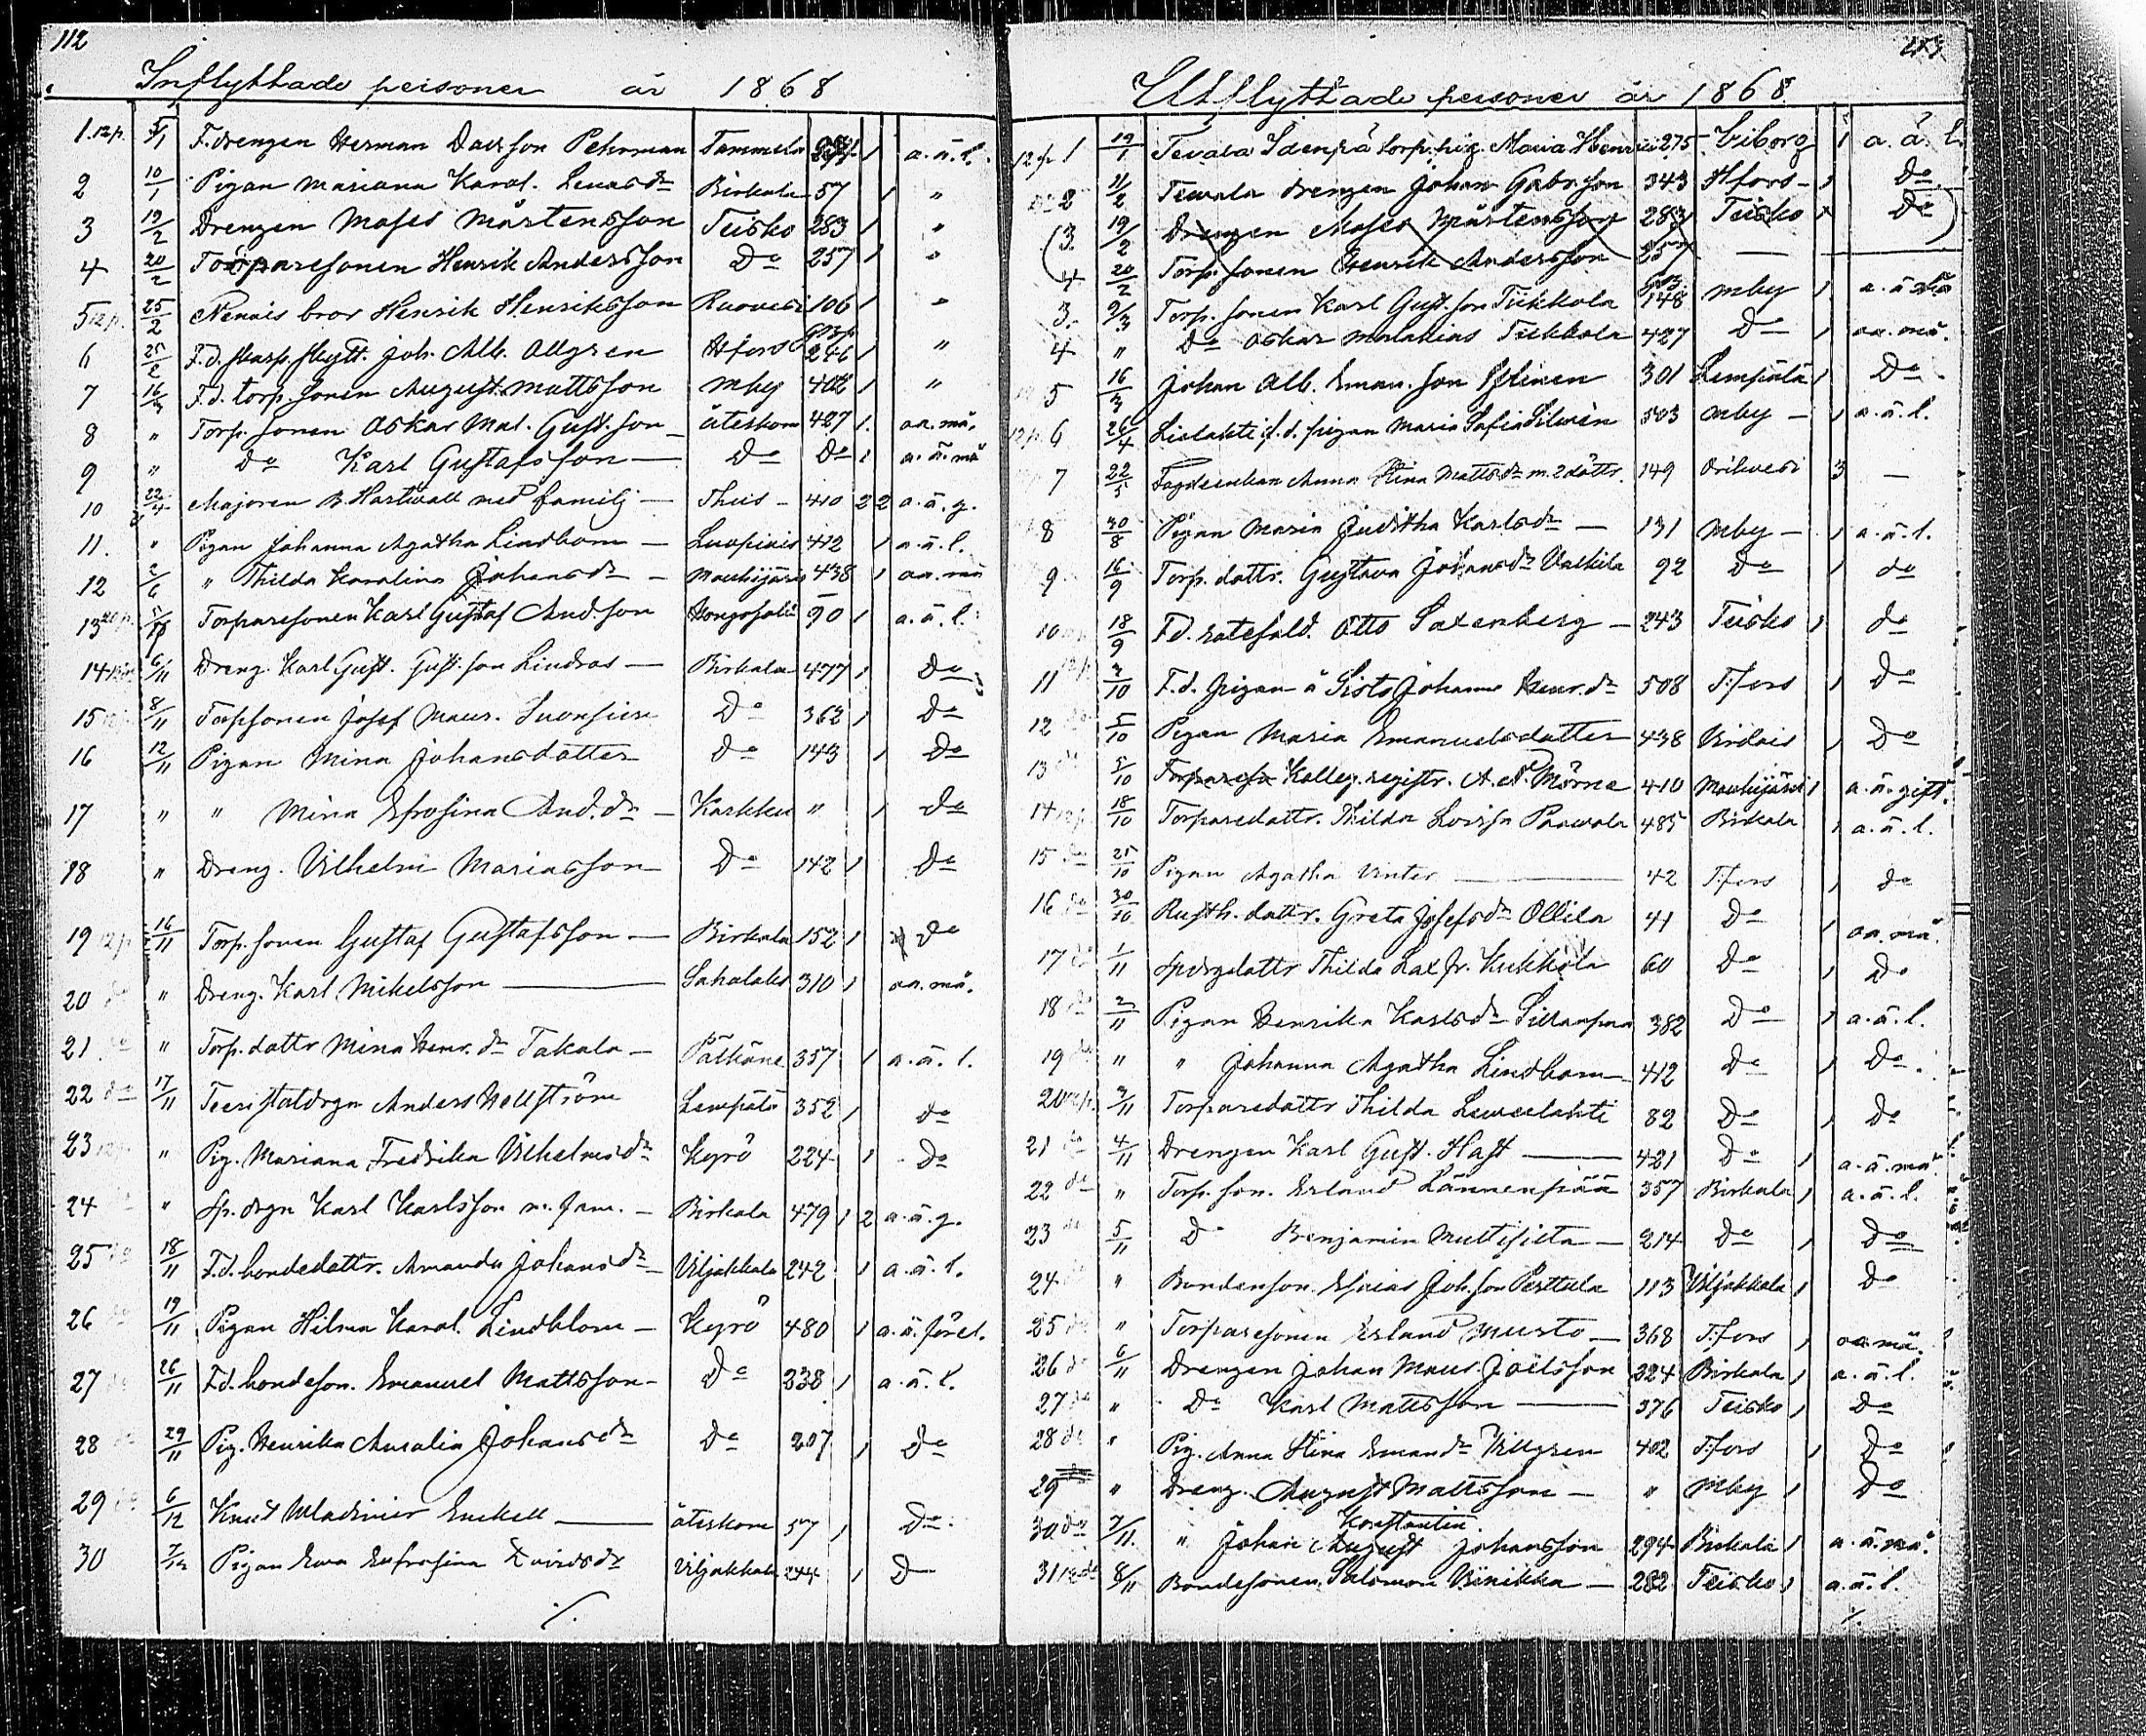 112
Inflyttade personer år 1868
1. 12p. 5/1 F.drengen Herman Davsson Pehrman Tammela 1 a.ä.l.
2 10/1 Pigan Mariana Karol. Lenasdr Birkala 57 1 "
3 19/2 Drengen Moses Mårtensson Teisko 283 1 "
4 20/2 Torparesonen Henrik Andersson Do 257 1 "
5 12p. 25/2 bror Henrik Henriksson Ruovesi 106 1 "
6 25/2 F.d. skarp.skytt. Joh. Alb. Allgren Hfors 246 1 "
7 16/3 F.d. torp.sonen August Mattsson mby 402 1 "
8 " Torp.sonen Oskar Mal. Gust.son återkom 427 1. oa.må.
9 " Do Karl Gustafsson — Do Do 1 a.ä.må
10 22/4 Majoren B. Hartwall med familj — Thus - 410 2 2 a.ä.g.
11. " Pigan Johanna Agatha Lindbom — 412 1 a.ä.l.
12 2/6 " Thilda Karolina Johansdr — Mouhijärvi 438 1 oa.må
13 Torparesonen Karl Gustaf And.son 90 1 a.ä.l.
14 6/11 Dreng. Karl Gust. Gust.son Lindros — Birkala 477 1 Do
15 12p 8/11 Torpsonen Josef Maur. Do 362 1 Do
16 12/11 Pigan Mina Johansdotter Do 143 1 Do
17 " " Mina Efrosina And.dr — Karkku " 1 Do
18 " Dreng. Vilhelm Mariasson Do 142 1 Do
19 12p 16/11 Torp.sonen Gustaf Gustafsson — Birkala 152 1 Do
20 do " Dreng. Karl Mikelsson — Sahalaks 310 1 oa.må.
21 do " Torp.dottr Mina Henr.dr Takala — Pälkäne 357 1 a.ä.l.
22 do 17/11 Anders Hellström Lempälä 352 1 do
23 12p " Pig. Mariana Fredrika Vilhelmsdr Kyrö 224 1 Do
24 " Sp.drgn Karl Karlsson m. fam. — Birkala 479 1 2 a.ä.g.
25 do 18/11 F.d. bondedottr. Amanda Johansdr Viljakkala 242 1 a.ä.l.
26 do 19/11 Pigan Hilma Karol. Lindblom — Kyrö 480 1 a.ä.förel.
27 do 26/11 F.d. bondeson. Emanuel Mattsson - Do 238 1 a.ä.l.
28 do 29/11 Pig. Henrika Amalia Johansdr Do 207 1 Do
29 do 6/12 Knut Wladimir Enckell — återkom 57 1 Do
30 7/12 Pigan Eva Eufrosina Viljakkala 244 1 D
./.
113
Utflyttade personer år 1868.
12p 1 19/1 Tevala Idenpä torp.pig. Maria Henr 275 Viborg 1 a.ä.l.
do 2 11/2 Tevala drengen Johan Gabr.son 343 Hfors - 1 Do
(3. 19/2 Drengen Moses Mårtensson 283 Teisko 1 Do)
4 20/2 Torp.sonen Henrik Andersson 257 —
3. 9/3 Torp.sonen Karl Gust.son Tiikkola 148 mby 1
4 " Do Oskar Malakias Tiikkola 427 Do 1 oa.må.
5 16/3 Johan Alb. Eman.son 301 Lempälä 1 Do
12p 6 26/4 Lielahti f.d. pigan Maria Sofia Silvén 503 mby — 1 a.ä.l.
7 22/5 Anna Stina Mattsdr m. 2 döttr. 149 Orihvesi 3 —
8 30/8 Pigan Maria Juditha Karlsdr — 131 mby — 1 a.ä.l.
9 16/9 Torp.dottr. Gustava Johansdr Valkila 92 Do 1 do
10 18/9 F.d. Otto Saxenberg — 243 Teisko 1 do
11 12p 2/10 F.d. pigan å Sisto Johanna Henr.dr 508 T:fors 1 Do
12 do 5/10 Pigan Maria Emanuelsdotter 438 Virdois 1 Do
13 do 5/10 Kolleg.registr. A. N. Mörne 410 Mouhijärvi 1 a.ä.gift.
14 12p. 18/10 Torparedottr. Thilda Lovisa Paavola 485 Birkala 1 a.ä.l.
15 do 25/10 Pigan Agatha Vinter — 42 T:fors 1 do
16 do 30/10 Rusth.dottr. Greta Josefsdr Ollila 41 Do 1 oa.må.
17 do 1/11 Thilda Kukkola 60 Do 1 Do
18 do 2/11 Pigan Henrika Karlsdr Sillanpää 382 Do 1 a.ä.l.
19 do " " Johanna Agatha Lindbom — 412 Do 1 Do.
20 12p. 3/11 Torparedottr Thilda 82 Do 1 Do
21 do 4/11 Drengen Karl Gust. Hast — 421 Do 1 a.ä.må.
22 do " Torp.son. Erland Lännenpää 357 Birkala 1 a.ä.l.
23 do 5/11 D Benjamin — 214 Do 1 Do
24 do " Bondeson. Esaias Joh.son Perttula 113 Viljakkala 1 Do
25 do " Torparesonen Erland Musto — 368 T:fors 1 oa.må.
26 do 6/11 Drengen Johan Maur. Joelsson 324 Birkala 1 a.ä.l.
27 do " Do Karl Mattsson — 376 Teisko 1 Do
28 do " Pig. Anna Stina Eman.dr Villgren 402 T:fors 1 Do
29 do " Dreng. August Mattsson — " mby 1 Do
Konstantin.
30 do 7/11. " Johan August Johansson 294 Birkala 1 a.ä.må.
31 12do 8/11 Bondesonen Salomon Vinikka — 282 Teisko 1 a.ä.l.
./.